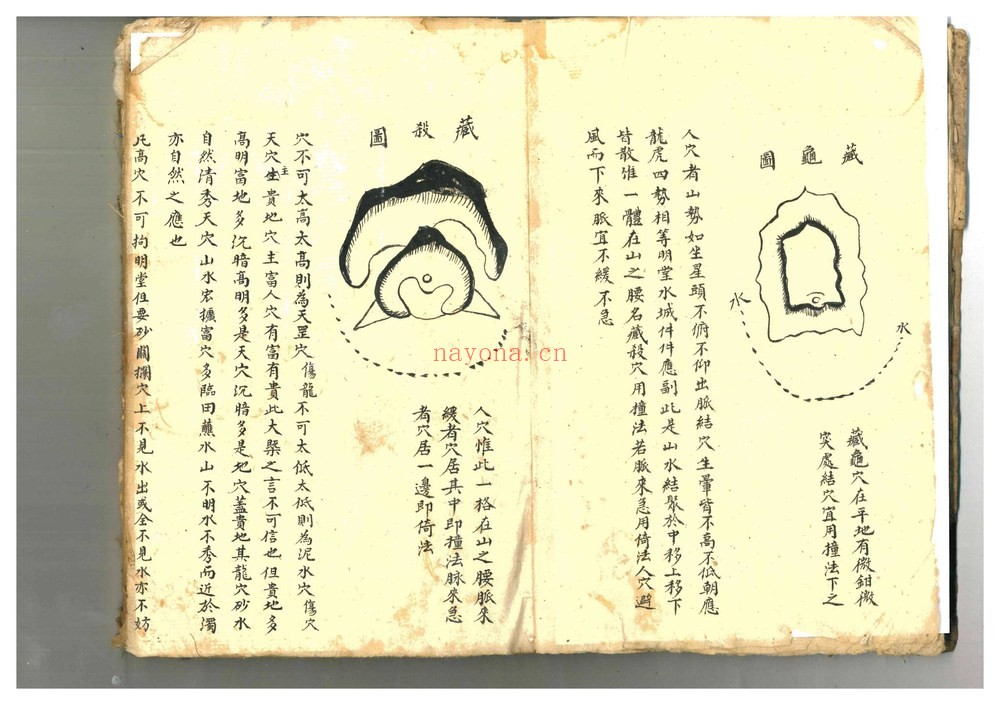 藏龜圖
水
水
藏龜穴在平地有微鉗微
突處結穴宜用撞法下之
人穴者山勢如坐星頭不俯不仰出脈結穴生暈皆不高不低朝應
龍虎四勢相等明堂水城件件應副此是山水結聚於中移上移下
皆散惟一體在山之腰名藏殺穴用撞法若脈來急用倚法人穴避
風而下來脈宜不緩不急
藏殺圖
人穴惟此一格在山之腰脈來
緩者穴居其中即撞法脉來急
者穴居一邊即倚法
穴不可太高太高則為天罡穴傷龍不可太低太低則為泥水穴傷穴
天穴主貴地穴主富人穴有富有貴此大槩之言不可信也但貴地多
高明富地多沉暗高明多是天穴沉暗多是地穴蓋貴地其龍穴砂水
自然清秀天穴山水宏擴富穴多臨田蘸水山不明水不秀而近於濁
亦自然之應也
凡高穴不可拘明堂但要砂關攔穴上不見水出或全不見水亦不妨
nayona.cn